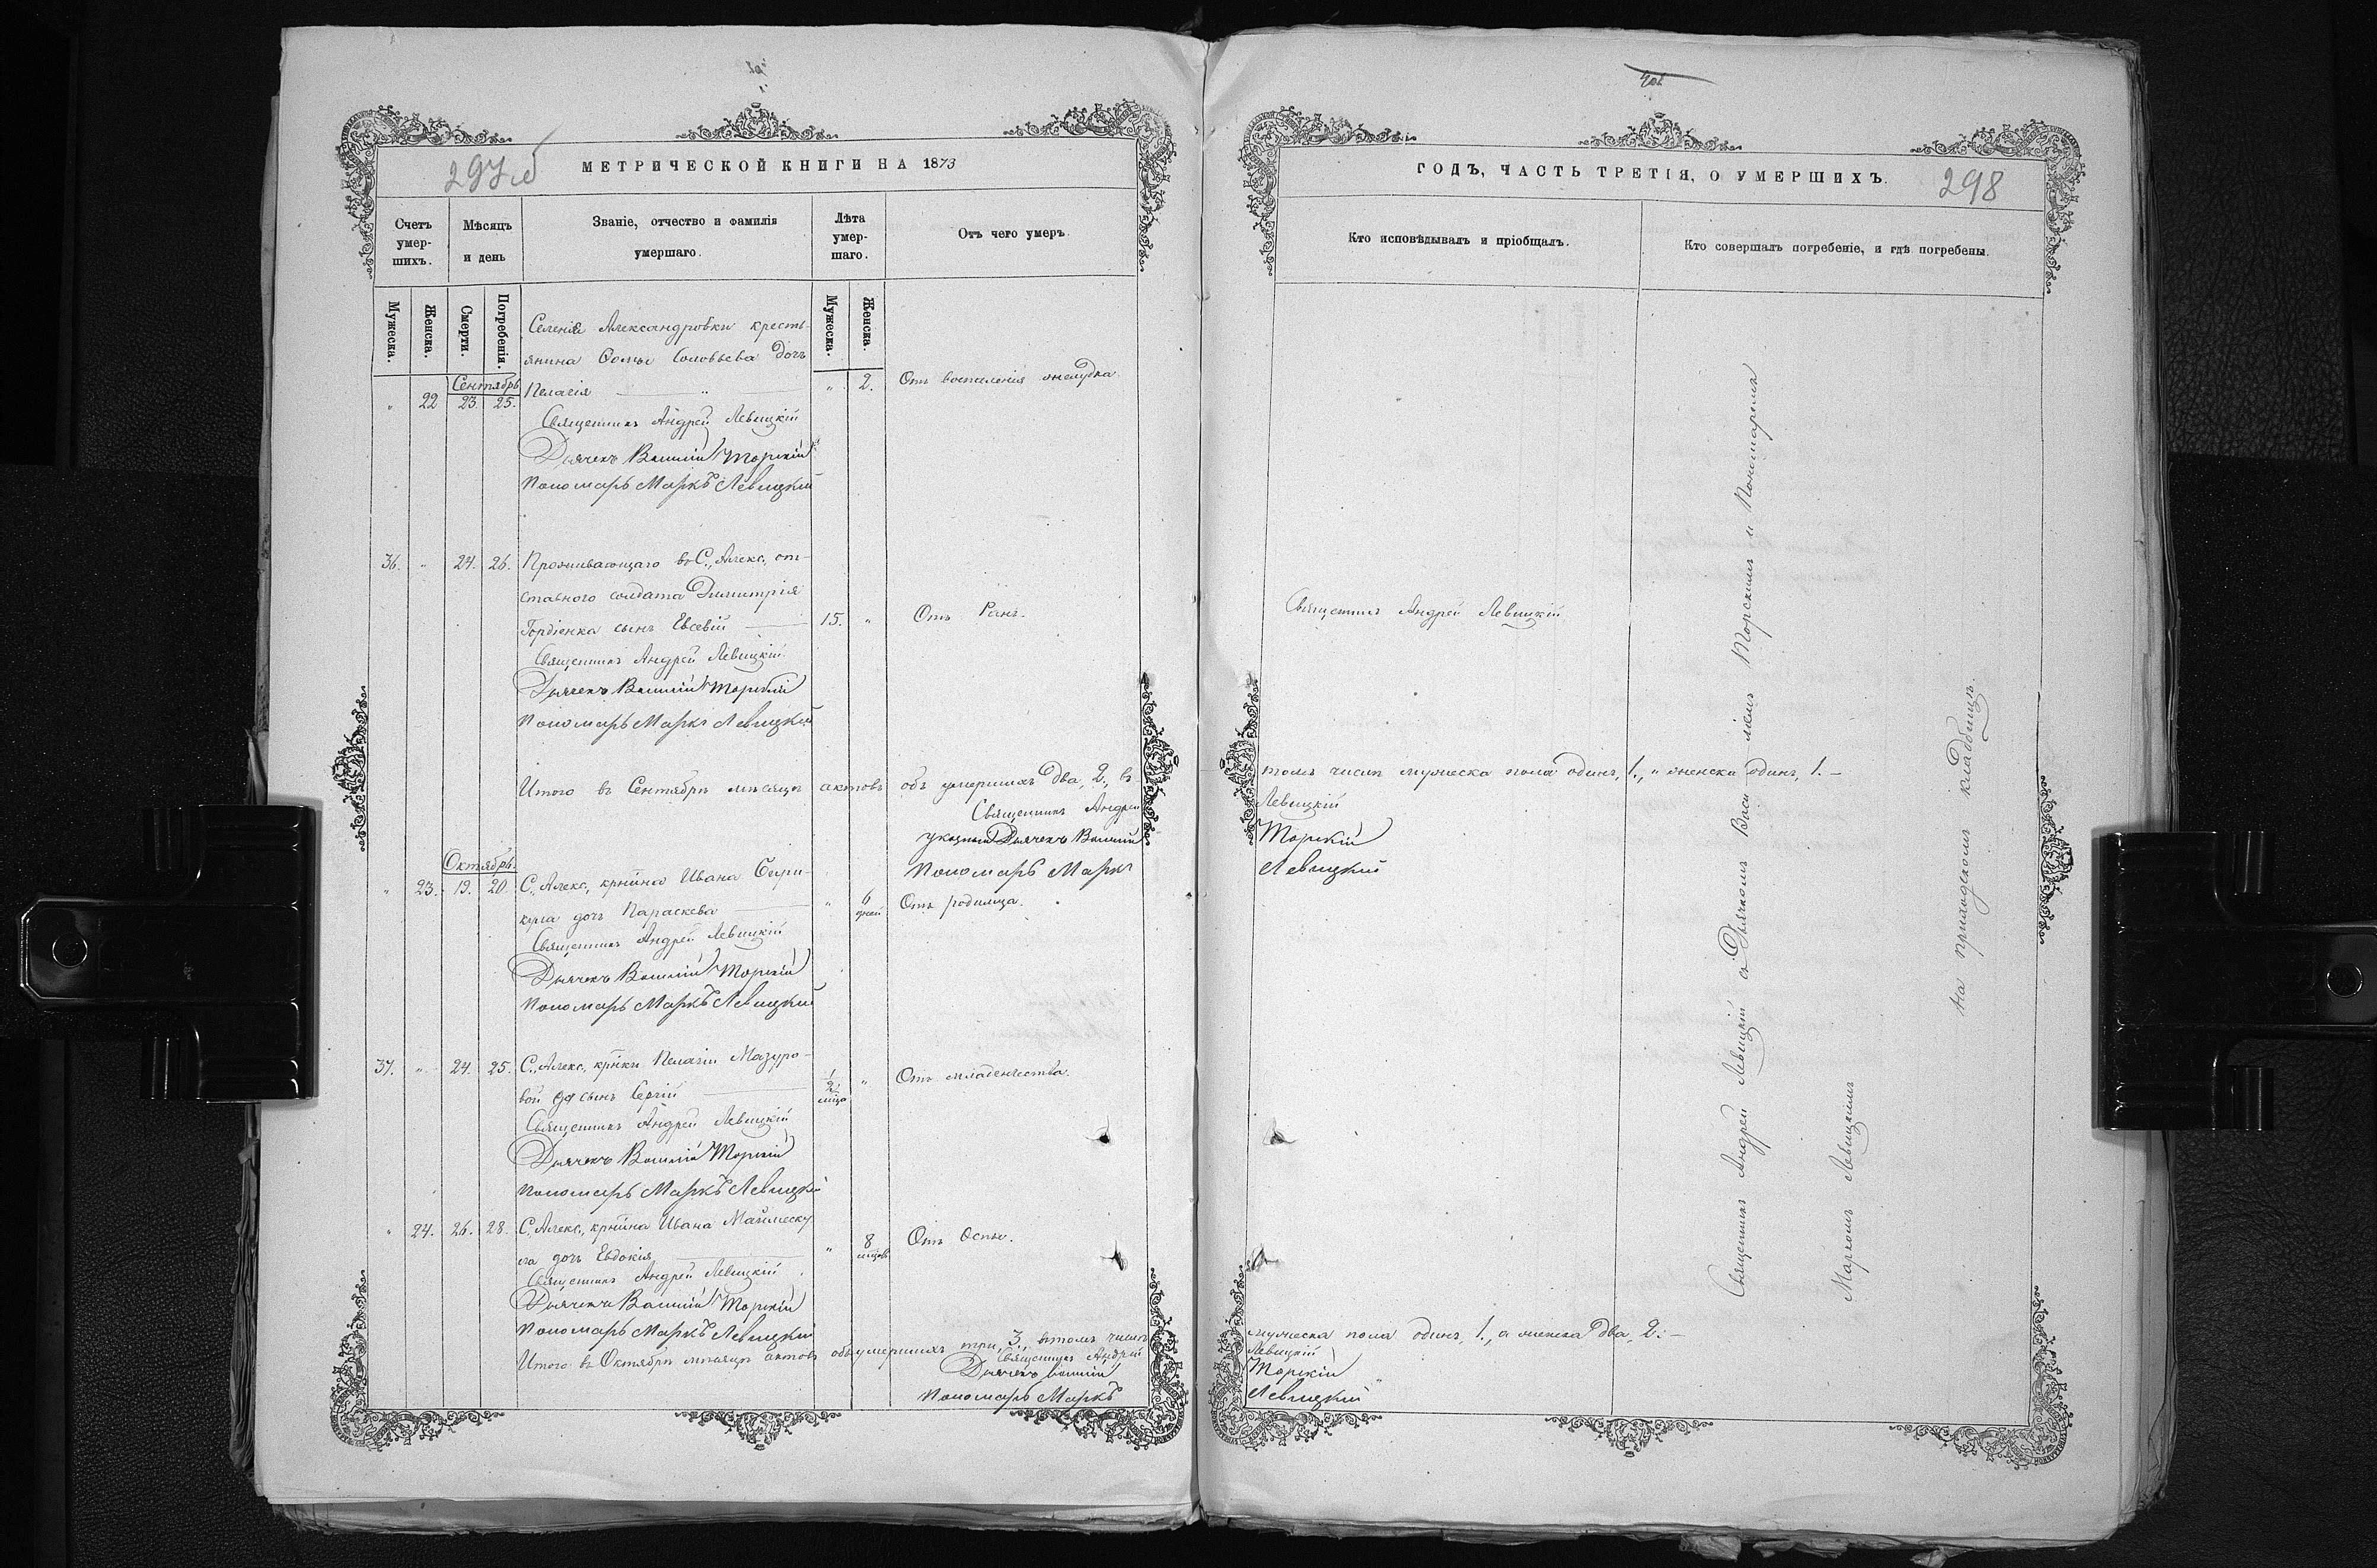 297об
МЕТРИЧЕСКОЙ КНИГИ НА 1873
Счетъ умер-шихъ.
Мѣсяцъ и день
Званіе, отчество и фамилія умершаго.
Лѣта умер-шаго.
Отъ чего умеръ
Мужеска.
Женска.
Смерти.
Погребенія.
Мужеска.
Женска.
Селенія Александровки кресть-
янина Ѳомы Соловьева дочь
Сентябрь
" 22 23. 25. Пелагія " 2. Отъ воспаленія желудка.
Священникъ Андрей Левицкій
Дьячекъ Василій Торскій
Пономарь Маркъ Левицкій
36. " 24. 26. Проживающаго въ С., Алекс, от-
ставного солдата Димитрія
Гордіенка сынъ Евсевій 15. " Отъ Ранъ.
Священникъ Андрей Левицкій
Дьячекъ Василій Торскій
Пономарь Маркъ Левицкій
Итого въ Сентябрѣ мѣсяцѣ актовъ объ умершихъ два, 2., въ
Священникъ Андрей
указный Дьячекъ Василій
Пономарь Маркъ
Октябрь.
" 23. 19. 20. С., Алекс, крнина Ивана
дочь Параскева " 6 дней Отъ родимца.
Священникъ Андрей Левицкій
Дьячекъ Василій Торскій
Пономарь Маркъ Левицкій
37. " 24. 25. С., Алекс, крнки Пелагіи Мазуро-
вой сынъ Сергій 1/2 мца " Отъ младенчества.
Священникъ Андрей Левицкій
Дьячекъ Василій Торскій
Пономарь Маркъ Левицкій
" 24. 26. 28. С., Алекс, крнина Ивана
дочь Евдокія " 8 мцовъ Отъ Оспы.
Священникъ Андрей Левицкій
Дьячекъ Василій Торскій
Пономарь Маркъ Левицкій
Итого въ Октябрѣ мѣсяцѣ актовъ объ умершихъ три, 3., въ томъ числѣ
Священникъ Андрей
Дьячекъ Василій
Пономарь Маркъ
ГОДЪ, ЧАСТЬ ТРЕТІЯ, О УМЕРШИХЪ.
298
Кто исповѣдывалъ и пріобщалъ.
Кто совершалъ погребеніе, и гдѣ погребены.
Священникъ Андрей Левицкій
томъ числѣ мужеска пола одинъ, 1., " женска одинъ, 1. –
Левицкій
Торскій
Левицкий
мужеска пола одинъ, 1., а женска два, 2. –
Левицкій
Торскій
Левицкий
Священникъ Андрей Левицкій съ Дьячкомъ Васи ліемъ Торскимъ и Пономаремъ
Маркомъ Левицкимъ
На приходскомъ кладбищѣ.